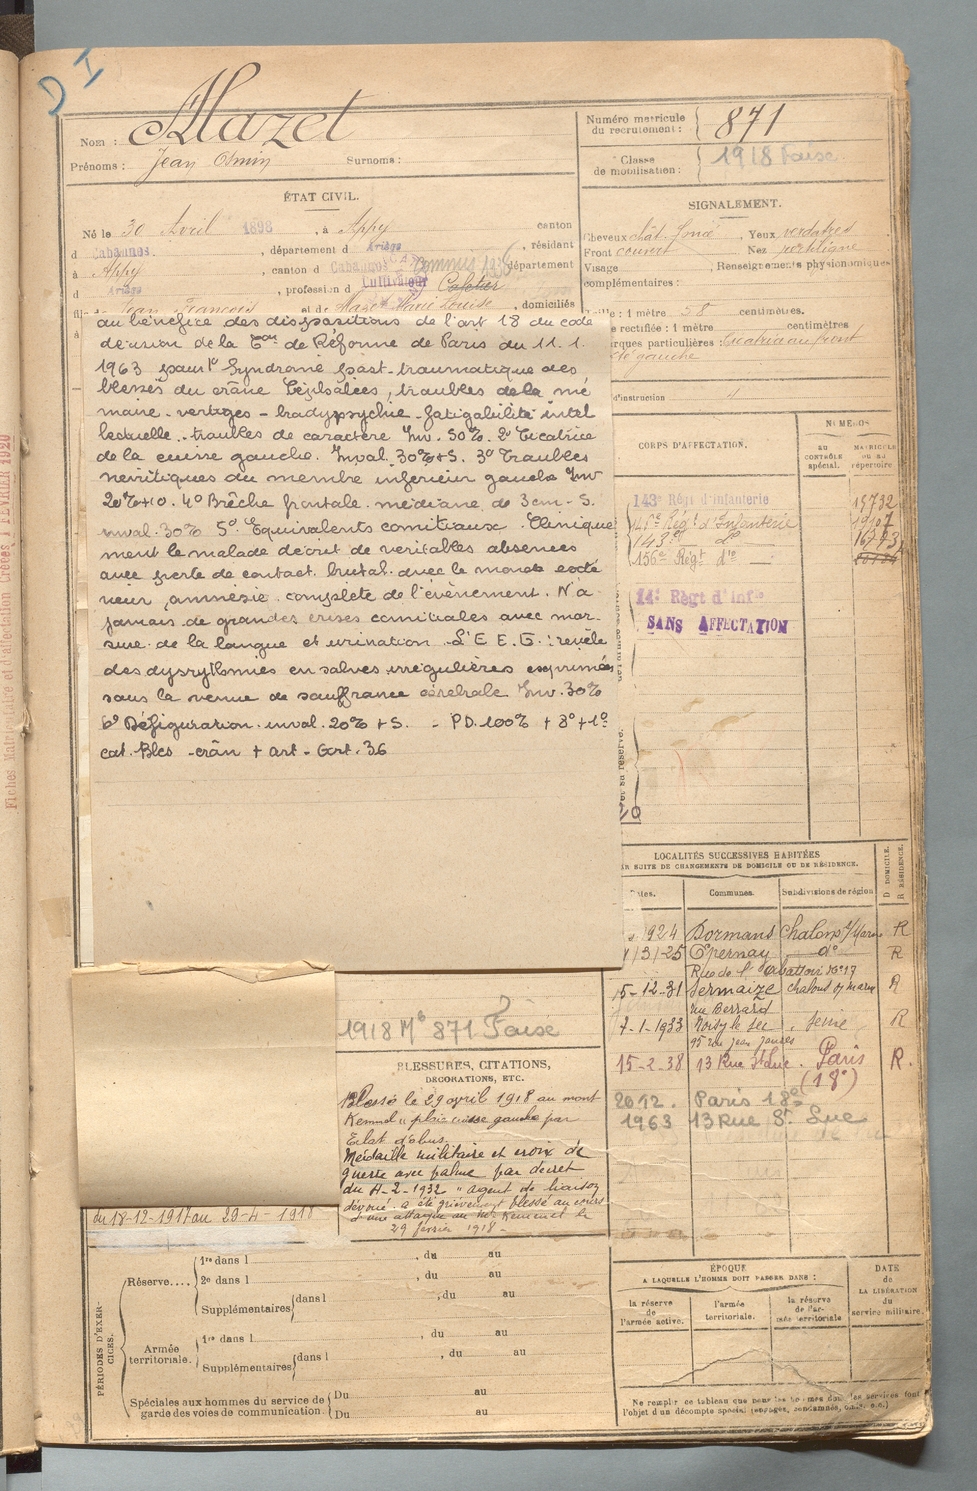 D I
Nom : Mazet
Prénoms : Jean Osmin Surnoms :
Numéro matricule
du recrutement : 871
Classe
de mobilisation : 1918 Foix
ÉTAT CIVIL.
Né le 30 Avril 1898, à Appy canton
d Cabannes, département d Ariège, résidant
à Appy, canton d Cabannes département
d Ariège, profession d Cultivateur
Jean François et de Marie Louise, domiciliés
SIGNALEMENT.
Cheveux chât. foncé, Yeux verdâtres
Front couvert Nez rectiligne
Visage Renseignements physionomiques
complémentaires :
Taille : 1 mètre 58 centimètres.
rectifiée : 1 mètre centimètres
Marques particulières : Cicatrice au front
côté gauche
d'instruction
au bénéfice des dispositions de l'art 18 du code
décision de la Con de Réforme de Paris du 11.1.
1963 pour 1º Syndrome post-traumatique des
blessés du crâne Céphalées, troubles de la mé
moire - vertiges - bradypsychie - fatigabilité intel
lectuelle - troubles de caractère Inv. 50%. 2º Cicatrice
de la cuisse gauche. Inval. 30%+5. 3º Troubles
névritiques du membre inférieur gauche Inv
20%+10. 4º Brèche frontale médiane de 3cm - S.
inval. 30% 5º Equivalents comitiaux. Clinique
ment le malade décrit de véritables absences
avec perte de contact brutal avec le monde exté
rieur, amnésie complète de l'évènement. N'a
jamais de grandes crises comitiales avec mor
sure de la langue et urination. L'E.E.G. : révèle
des dysrythmies en salves irrégulières exprimées
sous la venue de souffrance cérébrale Inv. 30%
6º Défiguration inval. 20% + S. - P.D. 100% + 8º + 1º
cat. Bles - crân + art - Gort. 36
CORPS D'AFFECTATION.
NUMÉROS
AU CONTRÔLE spécial.
MATRICULE ou au répertoire
143e Régt d'Infanterie 15732
Régt d'Infanterie 19107
143e do 16773
156e Régt do
14e Régt d'Infie
SANS AFFECTATION
LOCALITÉS SUCCESSIVES HABITÉES
PAR SUITE DE CHANGEMENTS DE DOMICILE OU DE RÉSIDENCE.
Dates. Communes. Subdivisions de région D DOMICILE. R RÉSIDENCE.
1924 Dormans Chalons s/Marne R
3-25 Epernay do R
Rue de l'abattoir No 17
15-12-31 Sermaize R
7-1-1933 Noisy le Sec Seine R
95 rue Jean Jaurès
15-2-38 13 Rue St Luc Paris R.
(18e)
20 12. Paris 18e
1963 13 Rue St Luc
1918 Mle 871 Foix
BLESSURES, CITATIONS,
DÉCORATIONS, ETC.
Blessé le 29 avril 1918 au mont
Kemmel "plaie cuisse gauche par
Eclat d'obus.
Médaille militaire et croix de
guerre avec palme par décret
du 11-2-1932 "agent de liaison
dévoué. a été grièvement blessé au cours
d'une attaque au Mt Kemmel le
29 février 1918 -
du 18-12-1917 au 29-4-1918
PÉRIODES D'EXERCICES.
Réserve.... 1re dans l , du au
2e dans l , du au
Supplémentaires dans l , du au
Armée
territoriale. 1re dans l , du au
Supplémentaires dans l , du au
Spéciales aux hommes du service de
garde des voies de communication Du au
Du au
ÉPOQUE
A LAQUELLE L'HOMME DOIT PASSER DANS :
la réserve
de
l'armée active.
l'armée
territoriale.
la réserve
de l'ar-
mée territoriale
DATE
de
LA LIBÉRATION
du
service militaire.
Ne remplir ce tableau que pour les hommes dont les services font
l'objet d'un décompte spécial (engagés, condamnés, omis, etc.)
Fiches Matriculaire et d'affectation Créées 1 FEVRIER 1920